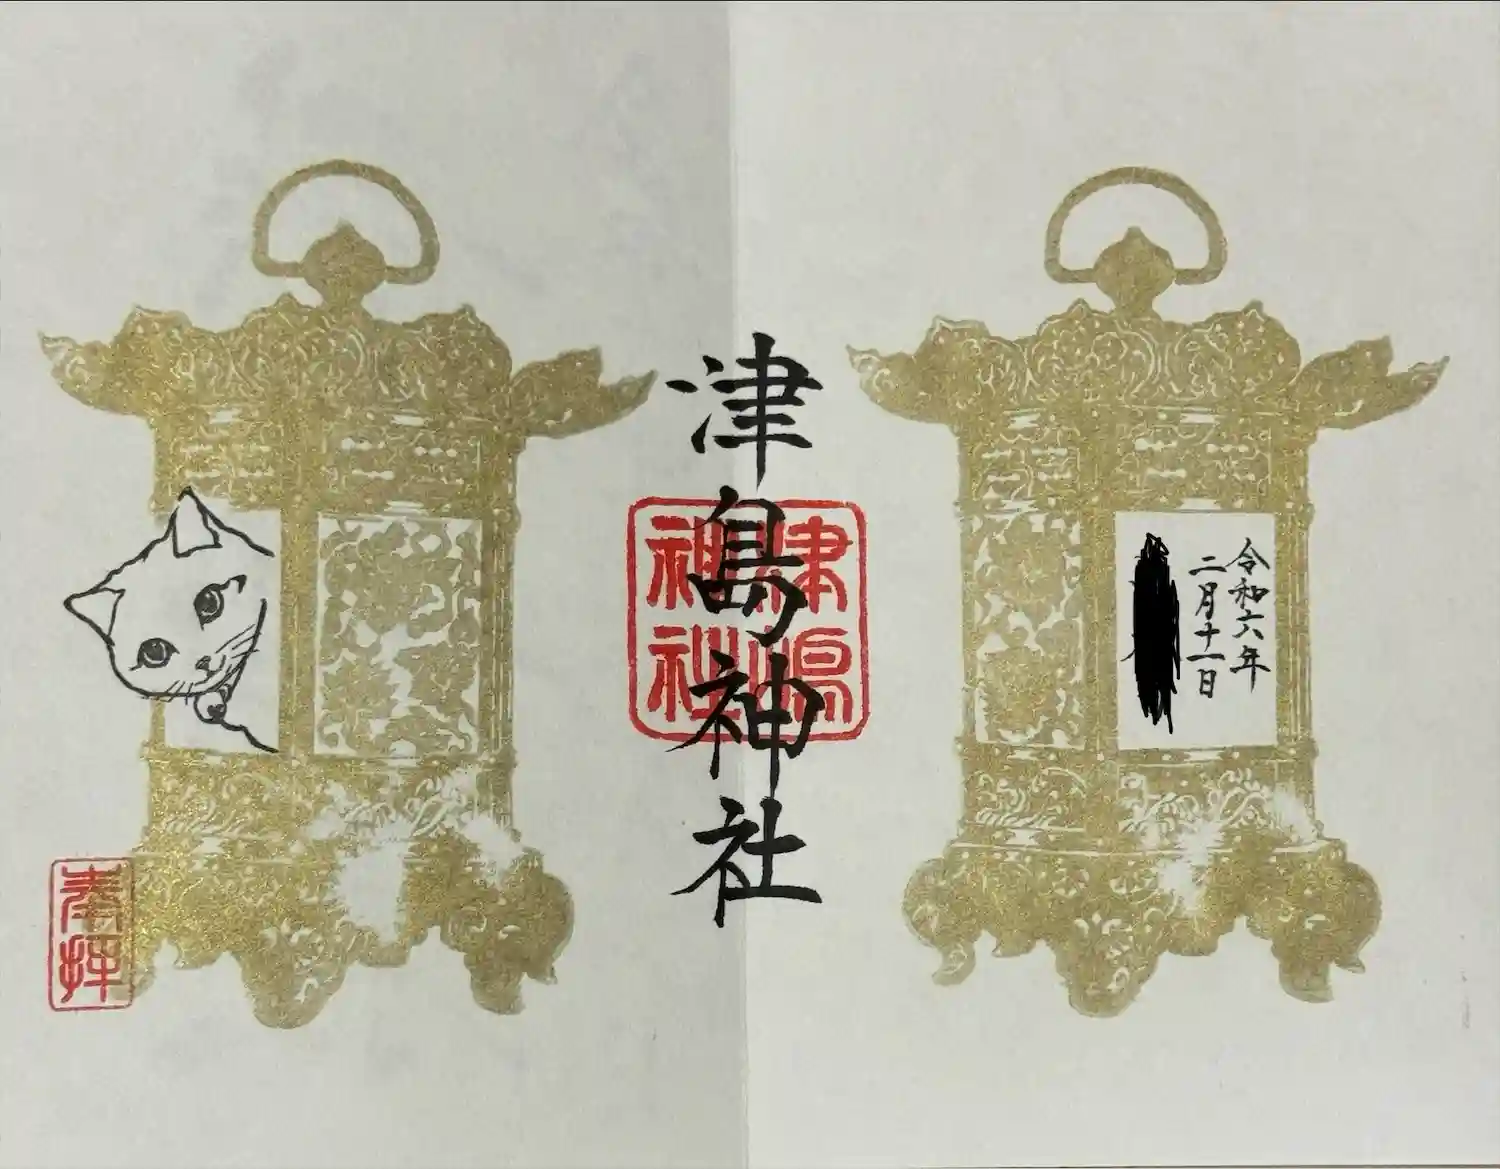 令和六年
二月十一日
津島神社
津嶋
神社
奉拝